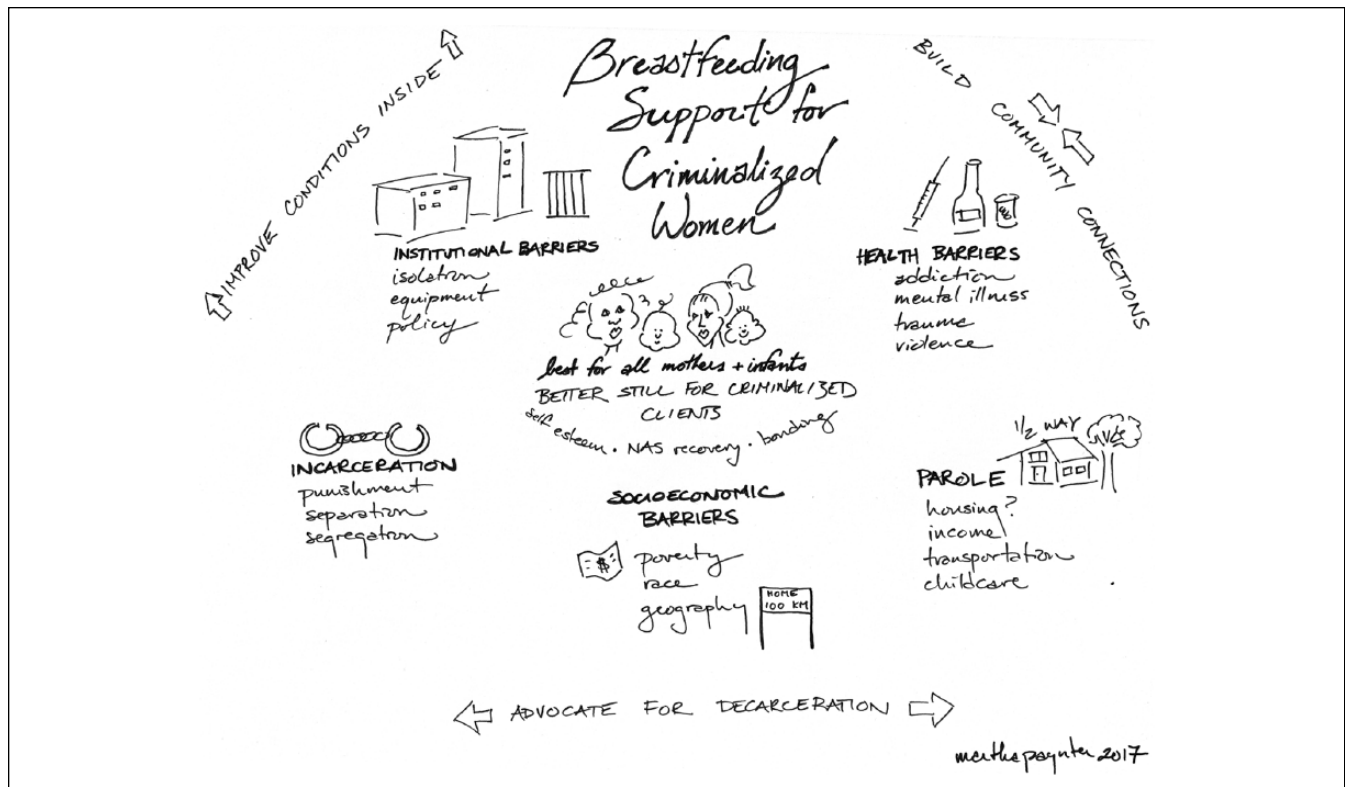 Breastfeeding
Support for
Criminalized
Women
IMPROVE CONDITIONS INSIDE
BUILD COMMUNITY CONNECTIONS
INSTITUTIONAL BARRIERS
isolation
equipment
policy
HEALTH BARRIERS
addiction
mental illness
trauma
violence
best for all mothers + infants
BETTER STILL FOR CRIMINALIZED
CLIENTS
self esteem · NAS recovery · bonding
INCARCERATION
punishment
separation
segregation
SOCIOECONOMIC
BARRIERS
$
poverty
race
geography
HOME
100 KM
1/2 WAY
PAROLE
housing?
income
transportation
childcare
ADVOCATE FOR DECARCERATION
martha paynter 2017